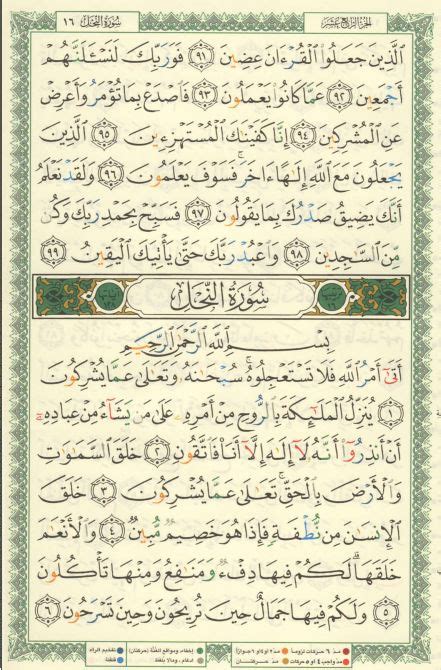 سُورَةُ النَّحْلِ ١٦
الجُزْءُ الرَّابِعَ عَشَرَ
ٱلَّذِينَ جَعَلُوا۟ ٱلْقُرْءَانَ عِضِينَ ٩١ فَوَرَبِّكَ لَنَسْـَٔلَنَّهُمْ
أَجْمَعِينَ ٩٢ عَمَّا كَانُوا۟ يَعْمَلُونَ ٩٣ فَٱصْدَعْ بِمَا تُؤْمَرُ وَأَعْرِضْ
عَنِ ٱلْمُشْرِكِينَ ٩٤ إِنَّا كَفَيْنَـٰكَ ٱلْمُسْتَهْزِءِينَ ٩٥ ٱلَّذِينَ
يَجْعَلُونَ مَعَ ٱللَّهِ إِلَـٰهًا ءَاخَرَ ۚ فَسَوْفَ يَعْلَمُونَ ٩٦ وَلَقَدْ نَعْلَمُ
أَنَّكَ يَضِيقُ صَدْرُكَ بِمَا يَقُولُونَ ٩٧ فَسَبِّحْ بِحَمْدِ رَبِّكَ وَكُن
مِّنَ ٱلسَّـٰجِدِينَ ٩٨ وَٱعْبُدْ رَبَّكَ حَتَّىٰ يَأْتِيَكَ ٱلْيَقِينُ ٩٩
سُورَةُ النَّحْلِ
بِسْمِ ٱللَّهِ ٱلرَّحْمَـٰنِ ٱلرَّحِيمِ
أَتَىٰٓ أَمْرُ ٱللَّهِ فَلَا تَسْتَعْجِلُوهُ ۚ سُبْحَـٰنَهُۥ وَتَعَـٰلَىٰ عَمَّا يُشْرِكُونَ
١ يُنَزِّلُ ٱلْمَلَـٰٓئِكَةَ بِٱلرُّوحِ مِنْ أَمْرِهِۦ عَلَىٰ مَن يَشَآءُ مِنْ عِبَادِهِۦٓ
أَنْ أَنذِرُوٓا۟ أَنَّهُۥ لَآ إِلَـٰهَ إِلَّآ أَنَا۠ فَٱتَّقُونِ ٢ خَلَقَ ٱلسَّمَـٰوَٰتِ
وَٱلْأَرْضَ بِٱلْحَقِّ ۚ تَعَـٰلَىٰ عَمَّا يُشْرِكُونَ ٣ خَلَقَ
ٱلْإِنسَـٰنَ مِن نُّطْفَةٍ فَإِذَا هُوَ خَصِيمٌ مُّبِينٌ ٤ وَٱلْأَنْعَـٰمَ
خَلَقَهَا ۗ لَكُمْ فِيهَا دِفْءٌ وَمَنَـٰفِعُ وَمِنْهَا تَأْكُلُونَ
٥ وَلَكُمْ فِيهَا جَمَالٌ حِينَ تُرِيحُونَ وَحِينَ تَسْرَحُونَ ٦
مدّ ٦ حركات لزوماً مدّ ٢ أو ٤ أو ٦ جوازاً إخفاء ومواقع الغُنَّة (حركتان) تفخيم الراء
مدّ واجب ٤ أو ٥ حركات مدّ حركتان إدغام، وما لا يلفظ قلقلة